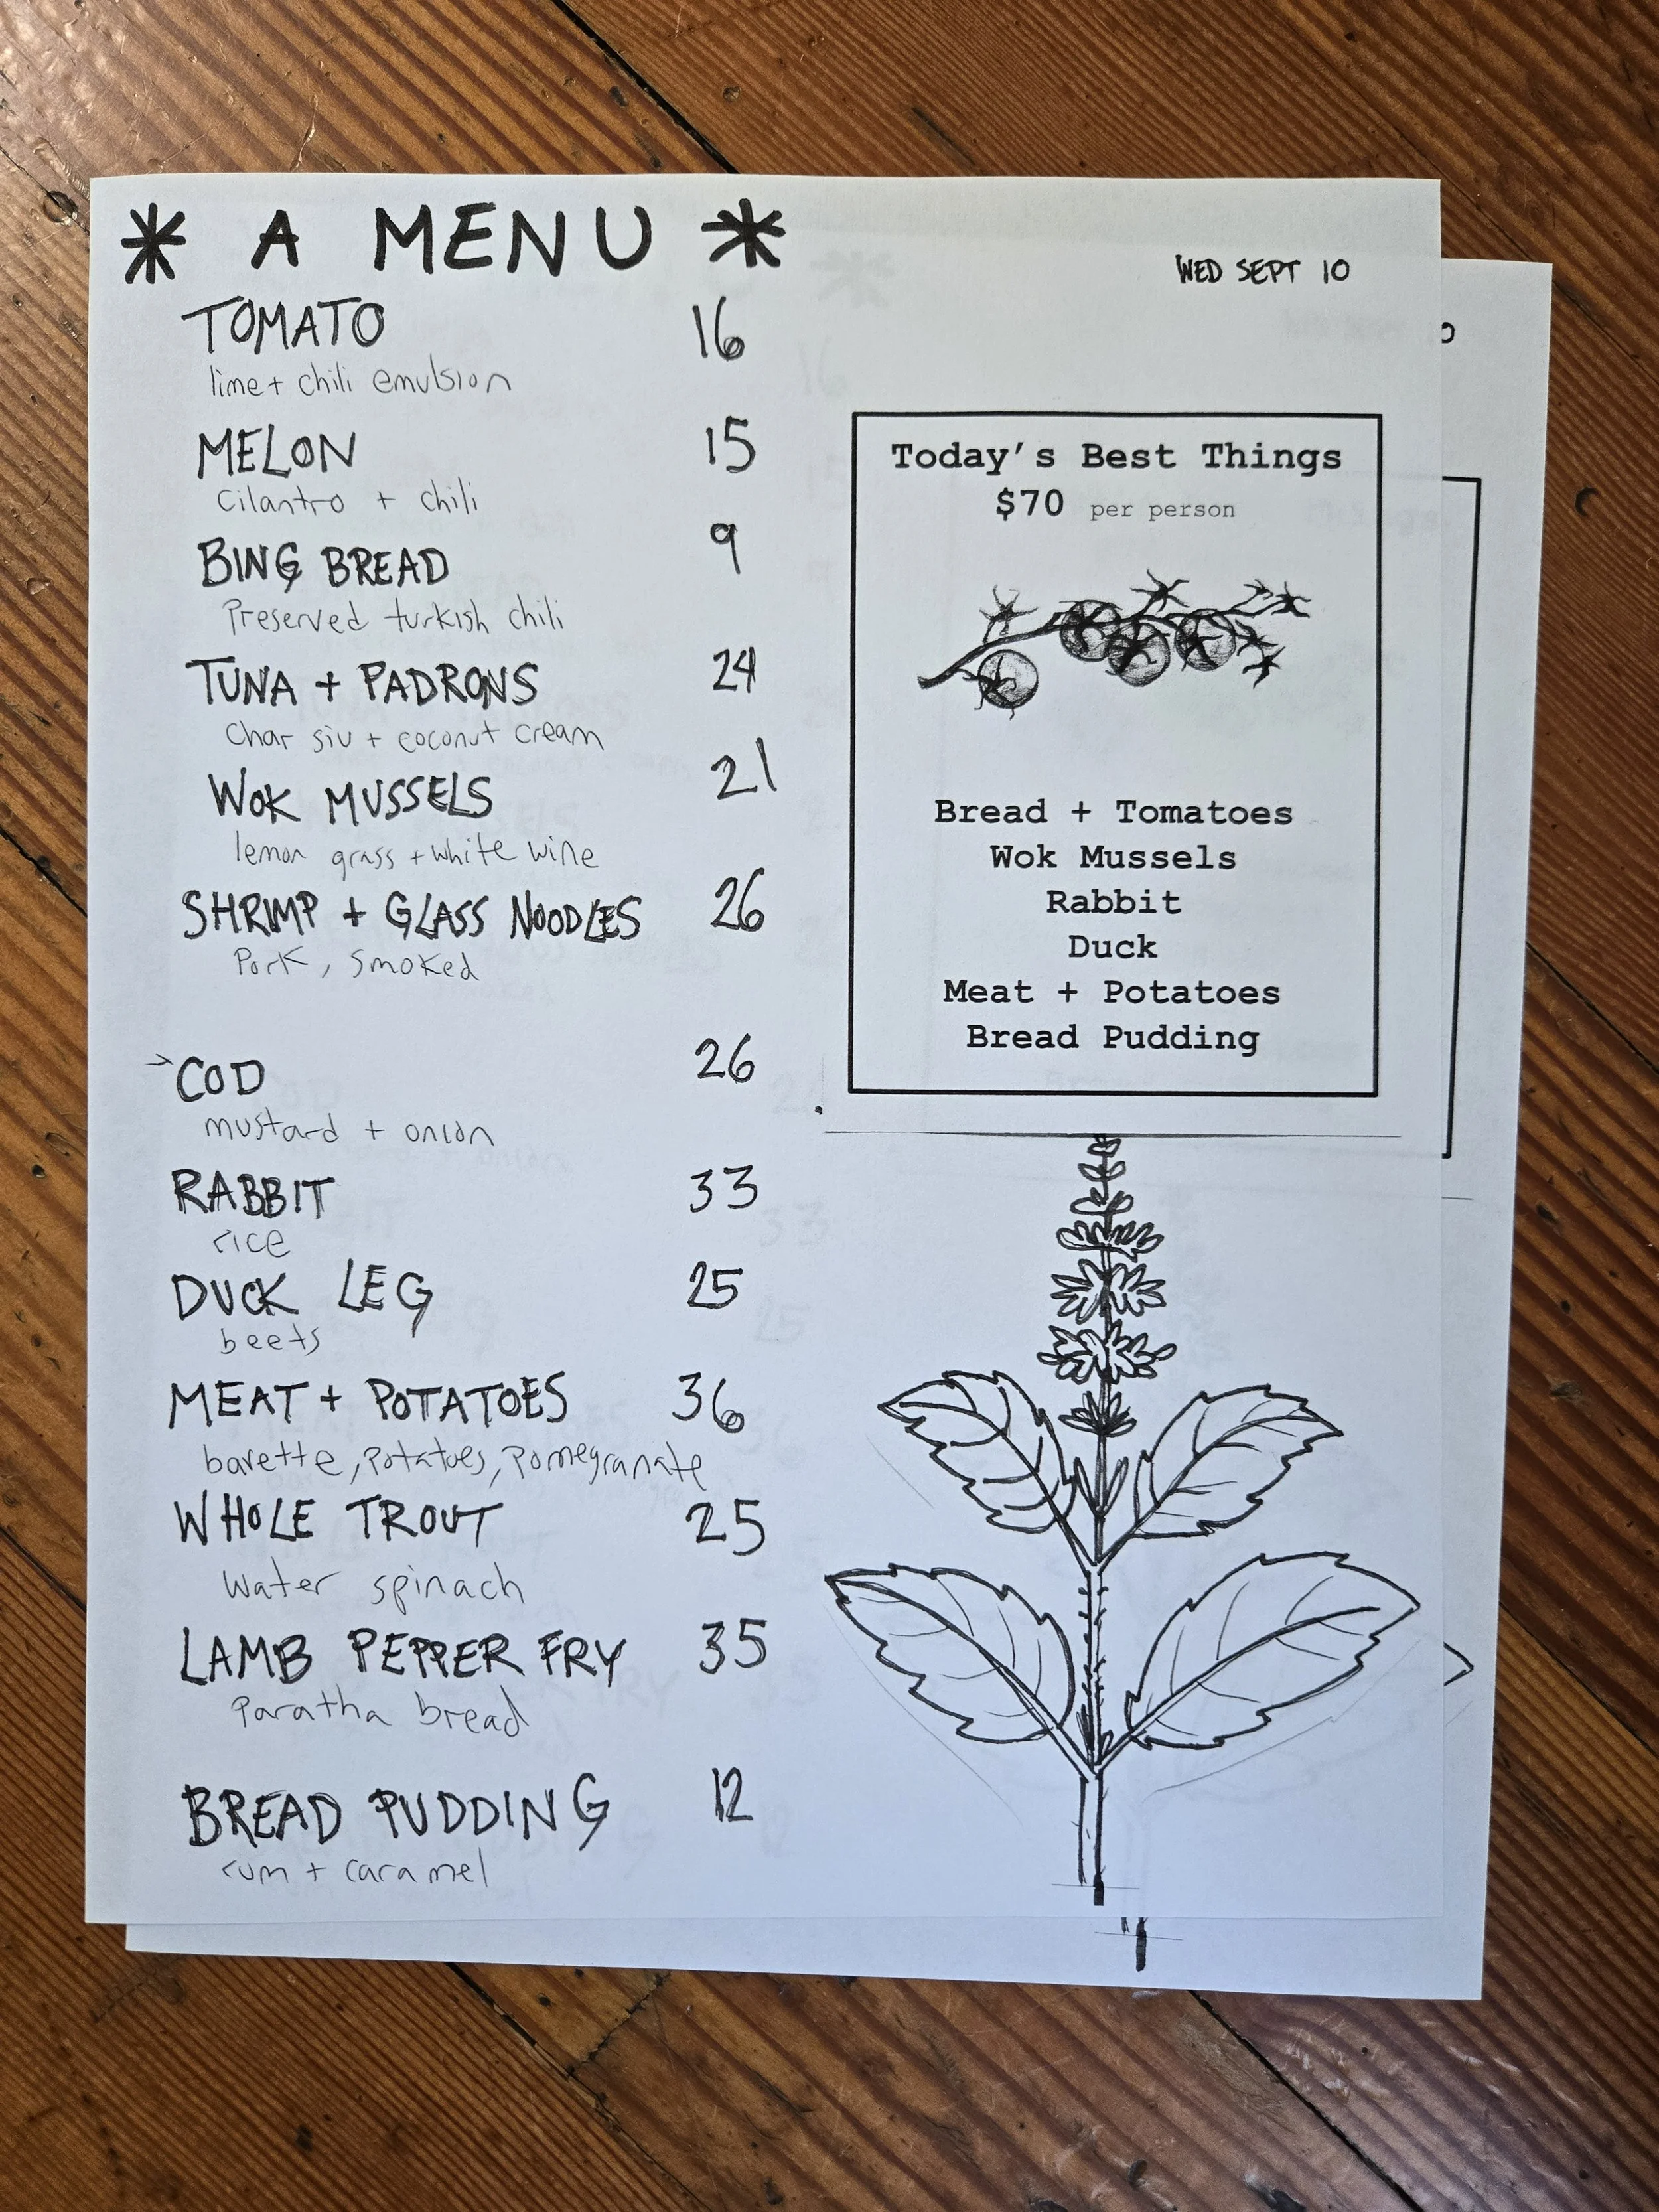 * A MENU *
WED SEPT 10
TOMATO 16
lime + chili emulsion
MELON 15
Cilantro + chili
BING BREAD 9
Preserved turkish chili
TUNA + PADRONS 24
Char siu + coconut cream
WOK MUSSELS 21
lemon grass + white wine
SHRIMP + GLASS NOODLES 26
Pork, smoked
→COD 26
mustard + onion
RABBIT 33
rice
DUCK LEG 25
beets
MEAT + POTATOES 36
bavette, potatoes, pomegranate
WHOLE TROUT 25
water spinach
LAMB PEPPER FRY 35
Paratha bread
BREAD PUDDING 12
rum + caramel
Today's Best Things
$70 per person
Bread + Tomatoes
Wok Mussels
Rabbit
Duck
Meat + Potatoes
Bread Pudding